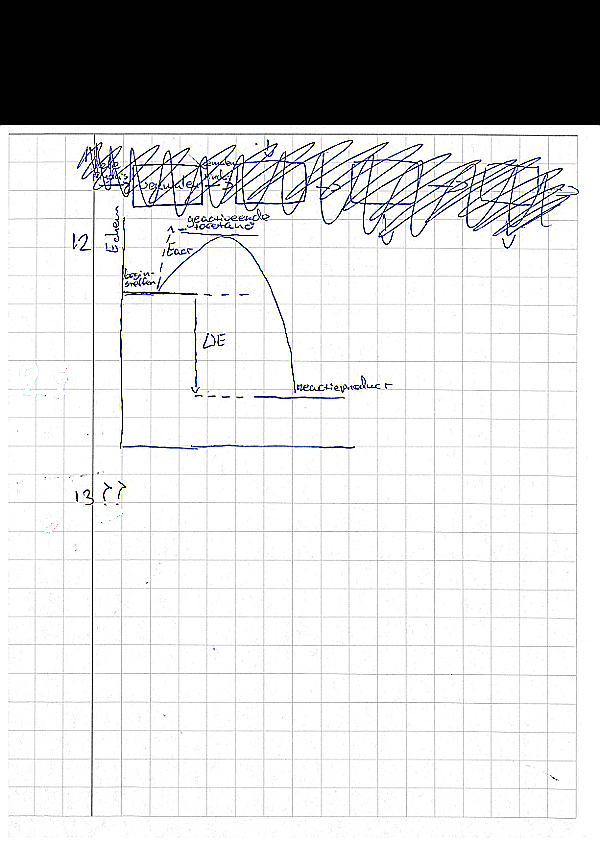 vermalen
12
Echem
geactiveerde
toestand
Eact
begin-
stoffen
ΔE
reactieproduct
13 ??